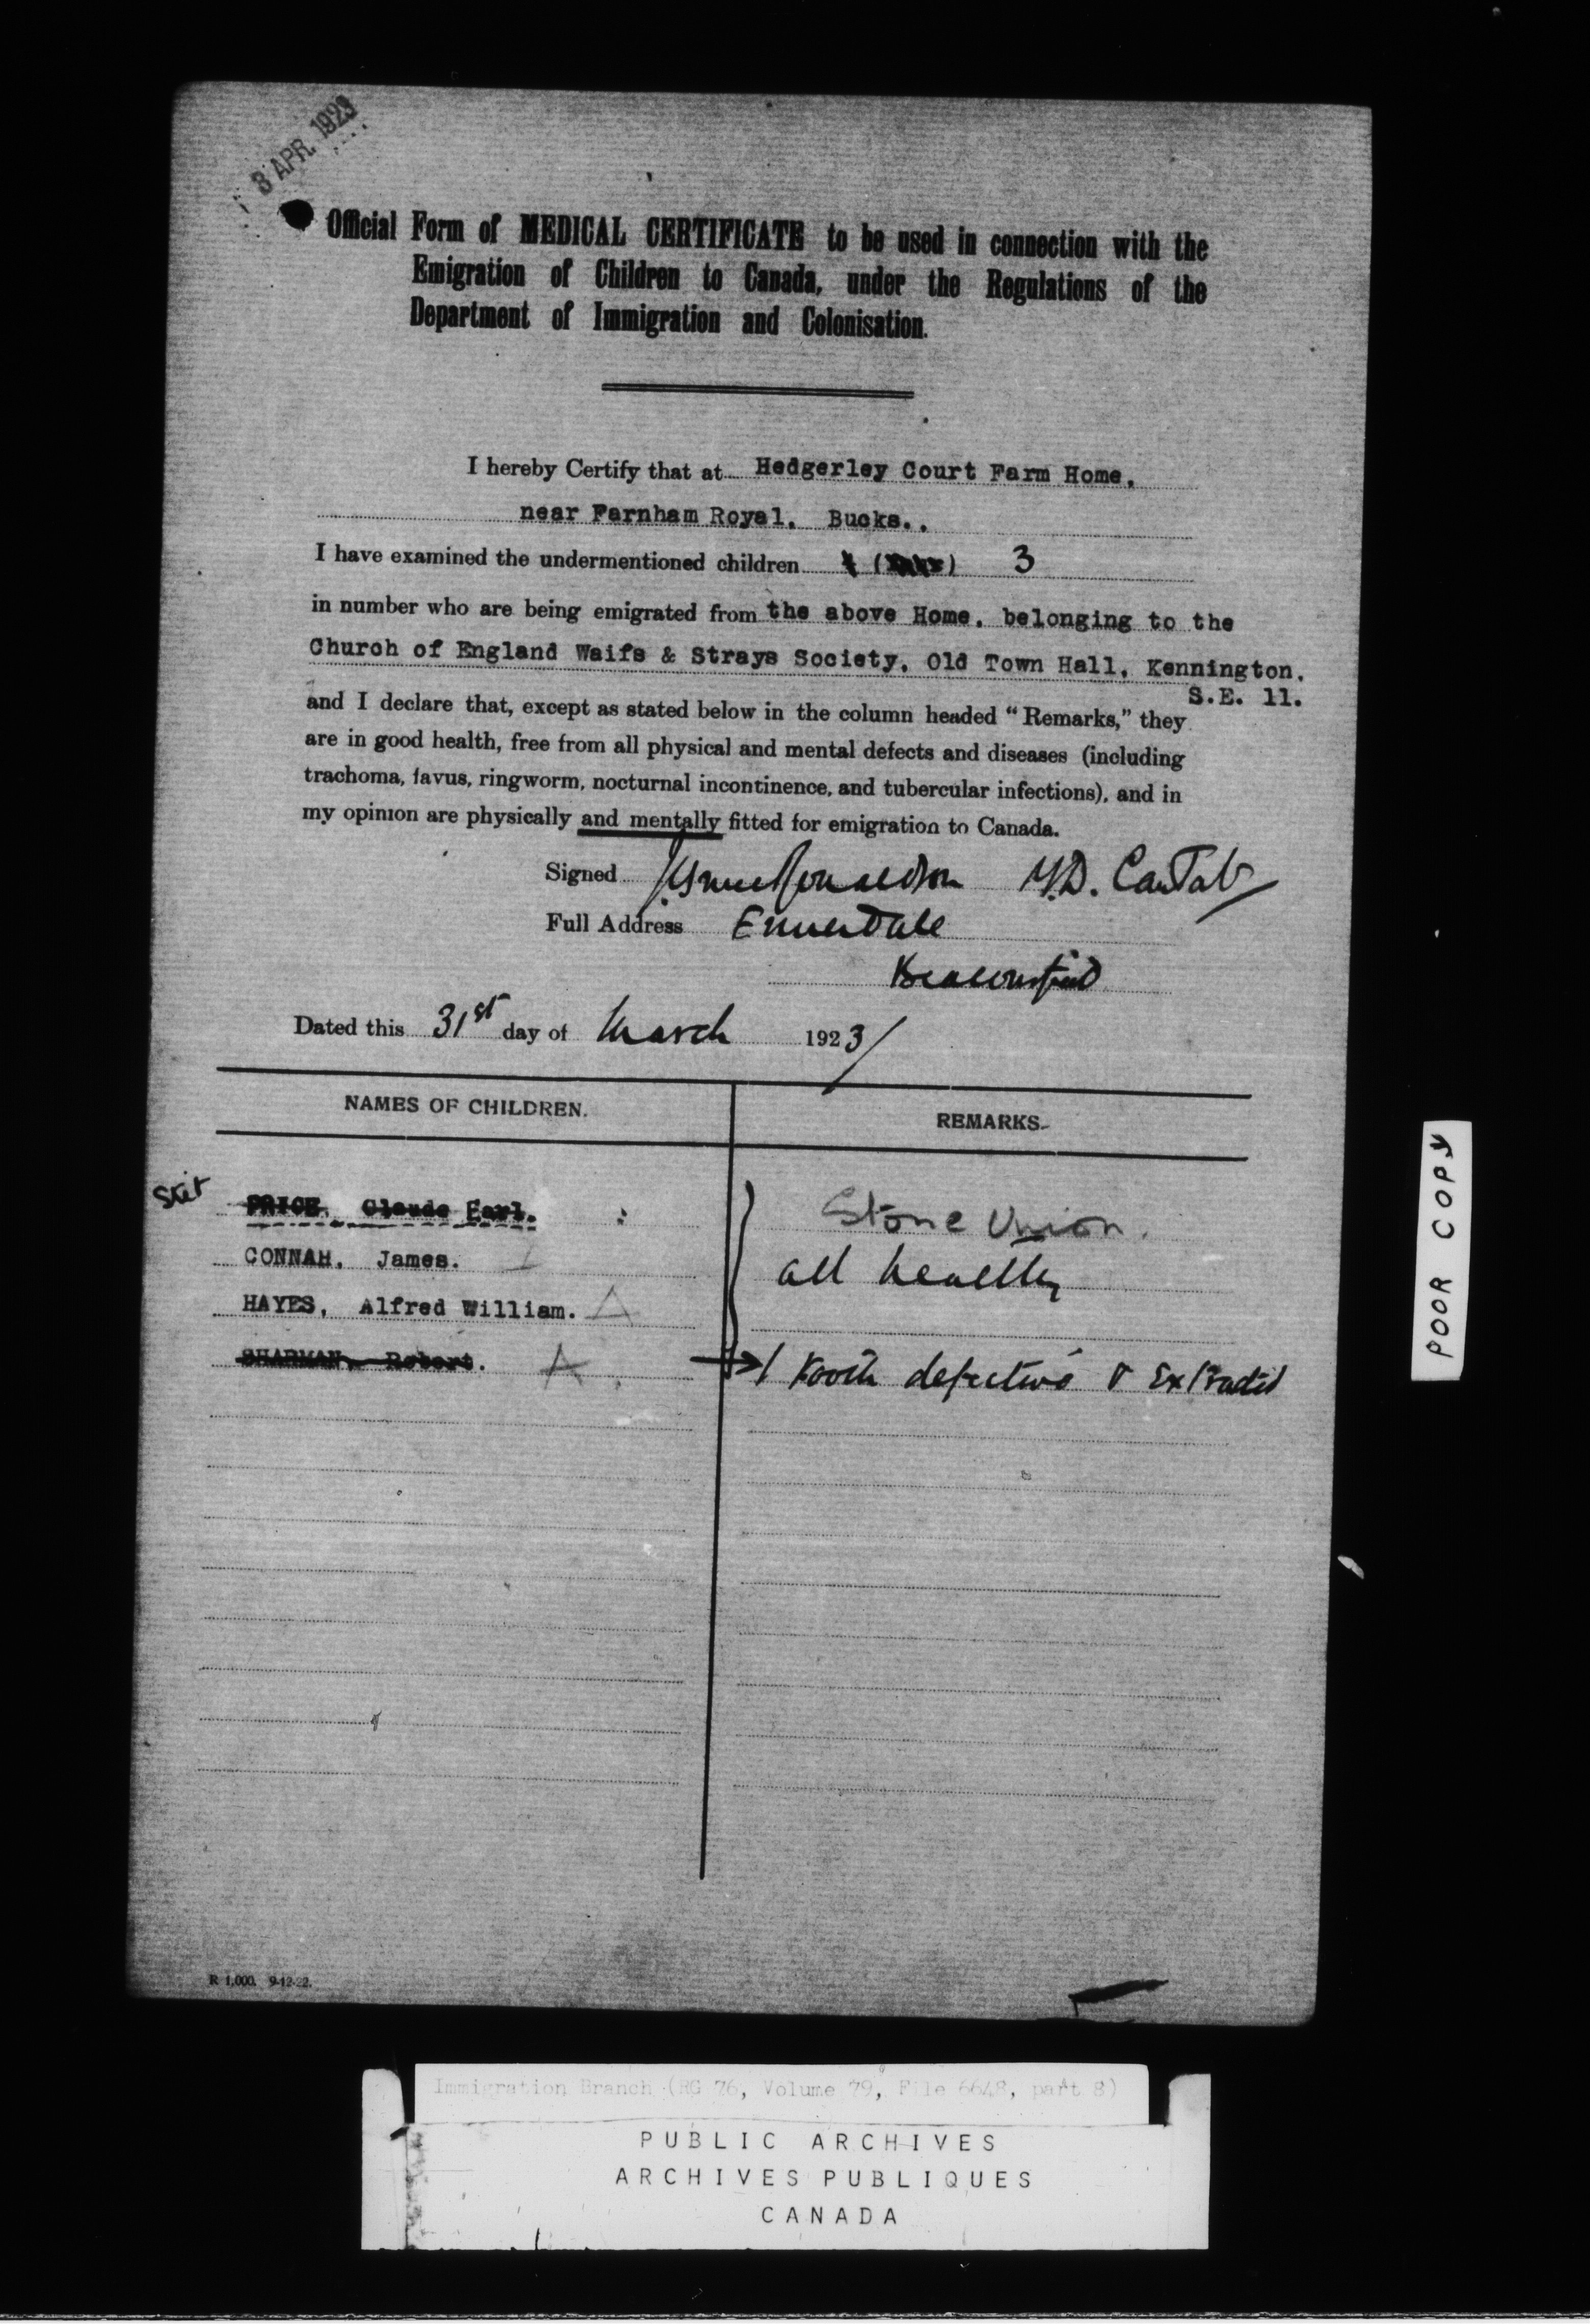 3 APR. 1923
Official Form of MEDICAL CERTIFICATE to be used in connection with the
Emigration of Children to Canada, under the Regulations of the
Department of Immigration and Colonisation.
I hereby Certify that at Hedgerley Court Farm Home,
near Farnham Royal, Bucks..
I have examined the undermentioned children 3
in number who are being emigrated from the above Home, belonging to the
Church of England Waifs & Strays Society, Old Town Hall, Kennington,
S.E. 11.
and I declare that, except as stated below in the column headed “Remarks,” they
are in good health, free from all physical and mental defects and diseases (including
trachoma, favus, ringworm, nocturnal incontinence, and tubercular infections), and in
my opinion are physically and mentally fitted for emigration to Canada.
Signed M.D. Cantab
Full Address Ennerdale
Beaconsfield
Dated this 31st day of March 1923
NAMES OF CHILDREN. REMARKS.
Stet PRICE, Claude Earl. Stone Union.
CONNAH, James. all healthy
HAYES, Alfred William.
SHARMAN, Robert. A 1 tooth defective & Extracted
R 1,000. 9-12-22.
POOR COPY
Immigration Branch (RG 76, Volume 79, File 6648, part 8)
PUBLIC ARCHIVES
ARCHIVES PUBLIQUES
CANADA